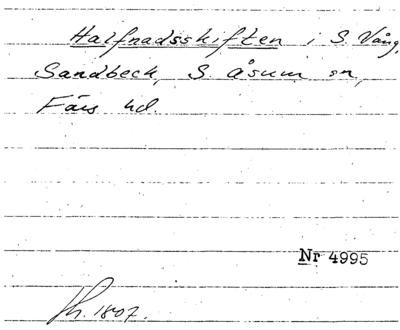 Halfnadsskiften i S. Vång,
Sandbeck, S. Åsum sn,
Färs hd.
Nr 4995
1807.